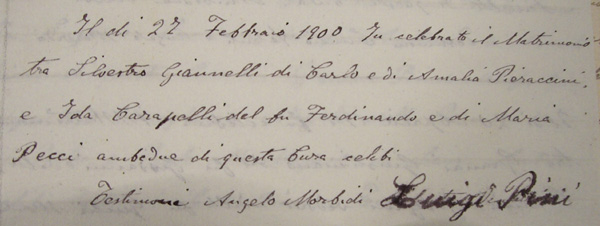 Il di 27 Febbraio 1900 fu celebrato il Matrimonio
tra Silvestro Giannelli di Carlo e di Amalia Pieraccini,
e Ida Carapelli del fu Ferdinando e di Maria
Pecci ambedue di questa Cura celibi
Testimoni Angelo Morbidi Luigi Pini